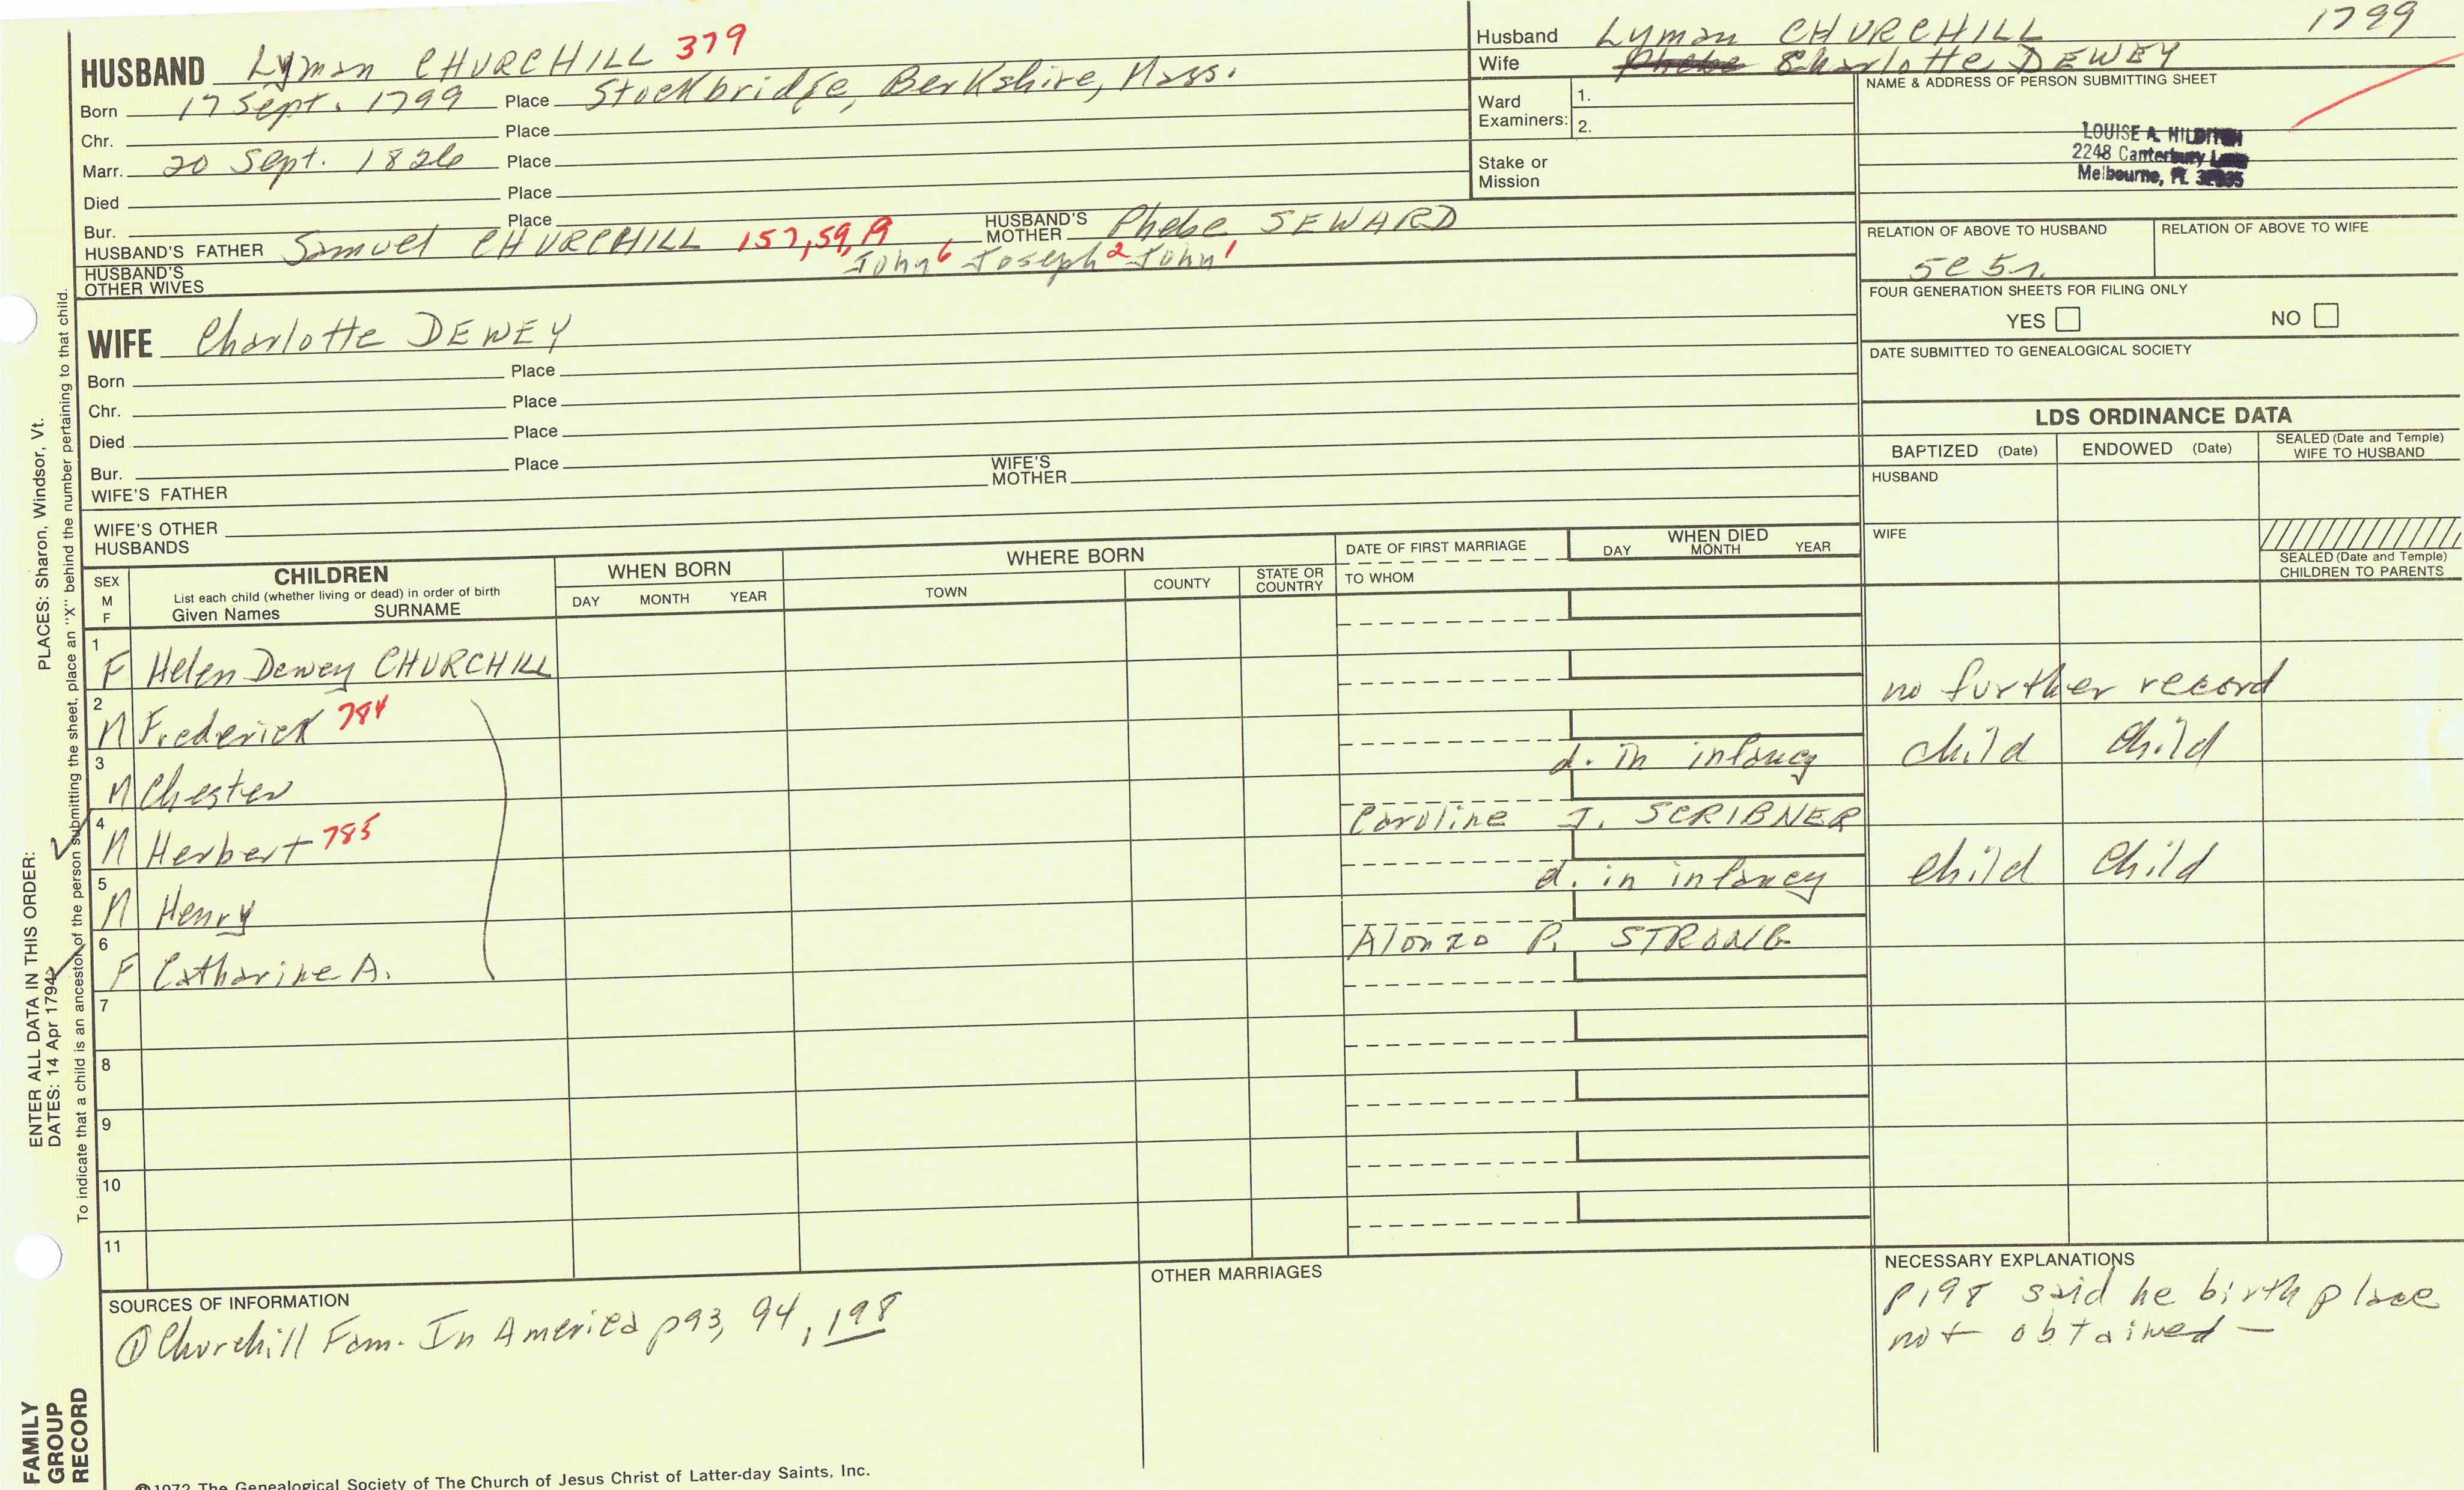 HUSBAND Lyman CHURCHILL 379
Born 17 Sept. 1799 Place Stockbridge, Berkshire, Mass.
Chr. Place
Marr. 20 Sept. 1826 Place
Died Place
Bur. Place
HUSBAND'S FATHER Samuel CHURCHILL 157,59,19 HUSBAND'S MOTHER Phebe SEWARD
John 6 Joseph 2 John 1
HUSBAND'S OTHER WIVES
Husband Lyman CHURCHILL 1799
Wife Phebe Charlotte DEWEY
Ward Examiners: 1.
2.
Stake or Mission
NAME & ADDRESS OF PERSON SUBMITTING SHEET
LOUISE A.
2248 Canterbury
Melbourne, FL
RELATION OF ABOVE TO HUSBAND RELATION OF ABOVE TO WIFE
5c 5r.
FOUR GENERATION SHEETS FOR FILING ONLY
YES NO
DATE SUBMITTED TO GENEALOGICAL SOCIETY
WIFE Charlotte DEWEY
Born Place
Chr. Place
Died Place
Bur. Place
WIFE'S FATHER WIFE'S MOTHER
WIFE'S OTHER HUSBANDS
LDS ORDINANCE DATA
BAPTIZED (Date) ENDOWED (Date) SEALED (Date and Temple) WIFE TO HUSBAND
HUSBAND
WIFE
SEALED (Date and Temple) CHILDREN TO PARENTS
SEX M F
CHILDREN
List each child (whether living or dead) in order of birth
Given Names SURNAME
WHEN BORN
DAY MONTH YEAR
WHERE BORN
TOWN COUNTY STATE OR COUNTRY
DATE OF FIRST MARRIAGE
TO WHOM
WHEN DIED
DAY MONTH YEAR
1 F Helen Dewey CHURCHILL
no further record
2 M Frederick 784
3 M Chester d. in infancy child child
4 M Herbert 785 Caroline J. SCRIBNER
5 M Henry d. in infancy child child
6 F Catharine A. Alonzo P. STRONG
7
8
9
10
11
SOURCES OF INFORMATION
① Churchill Fam. In America p93, 94, 198
OTHER MARRIAGES
NECESSARY EXPLANATIONS
p198 said he birth place
not obtained —
©1972 The Genealogical Society of The Church of Jesus Christ of Latter-day Saints, Inc.
FAMILY GROUP RECORD
ENTER ALL DATA IN THIS ORDER:
DATES: 14 Apr 1794
PLACES: Sharon, Windsor, Vt.
To indicate that a child is an ancestor of the person submitting the sheet, place an "X" behind the number pertaining to that child.